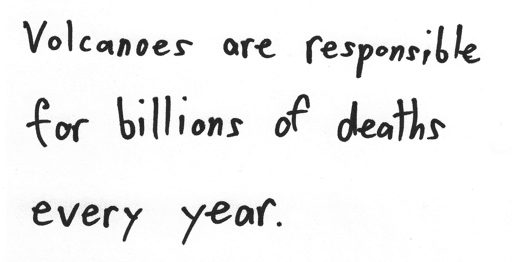 Volcanoes are responsible
for billions of deaths
every year.